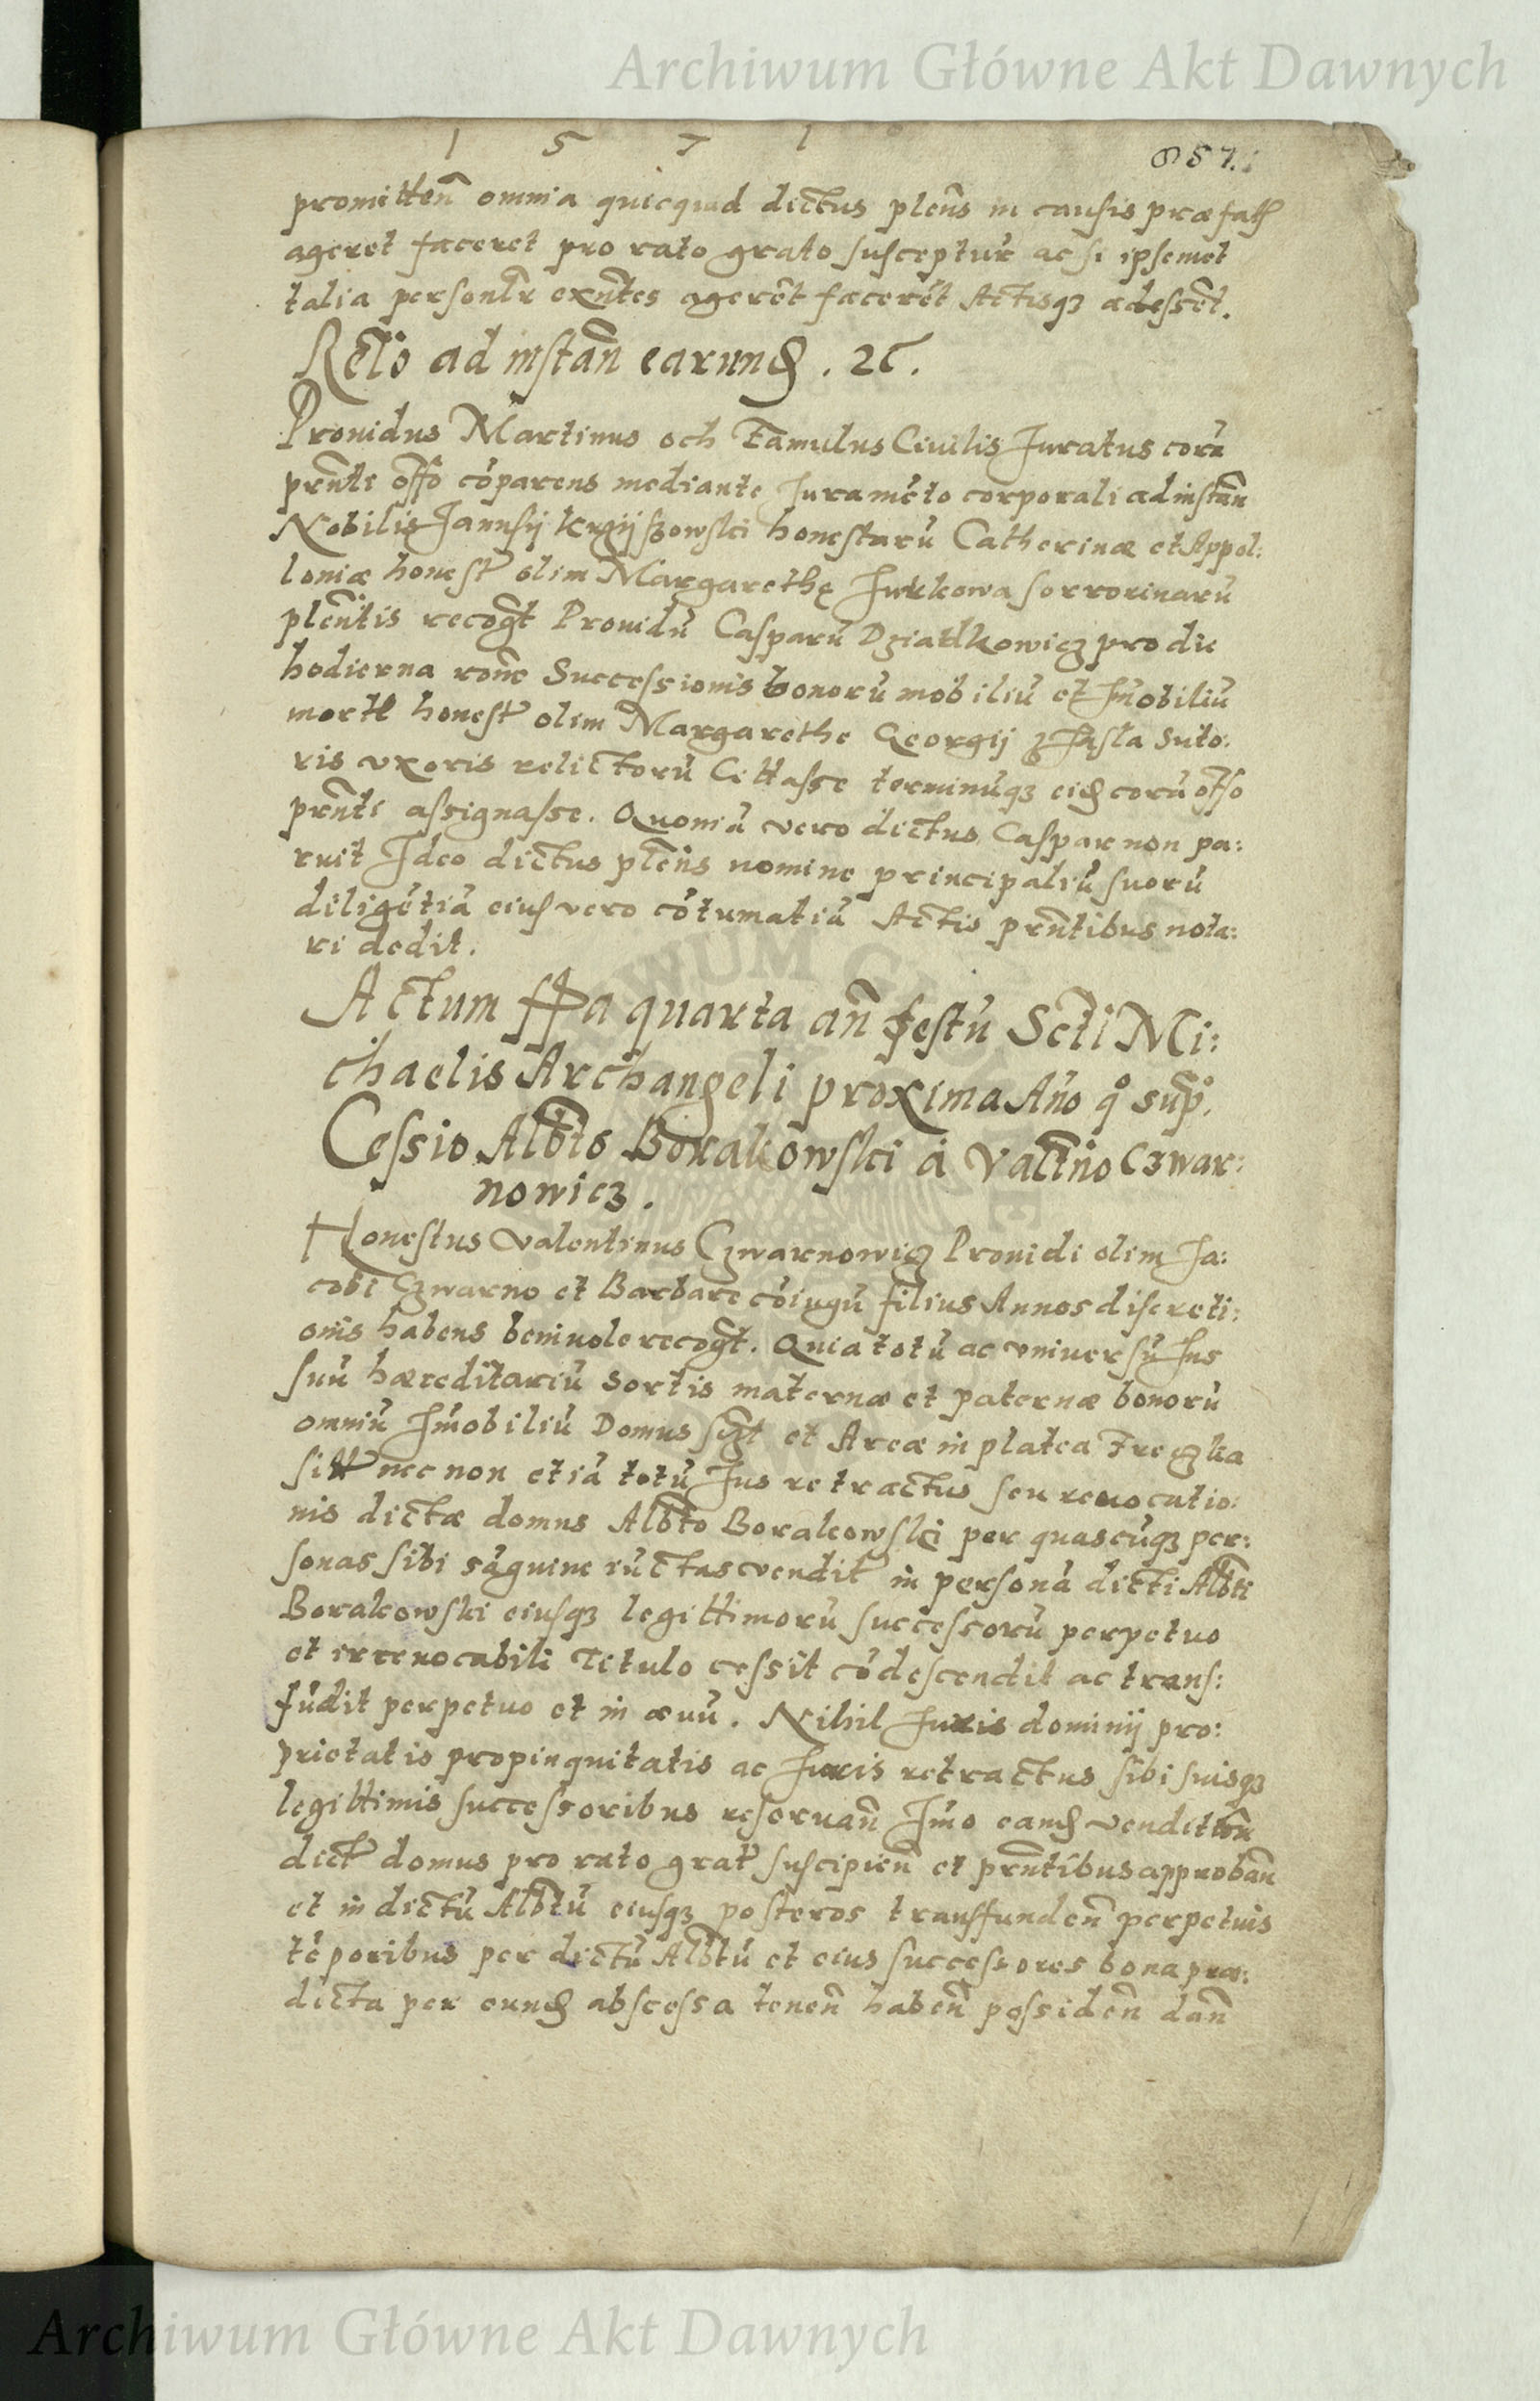 Archiwum Główne Akt Dawnych
1 5 7 1
857.
promitten̄ omnia quicquid dictus plen̄s in causis præfat̄
ageret faceret pro rato grato susceptur̄ ac si ipsemet
talia personlr̄ exn̄tes agerēt facerēt Actisqȝ adessēt.
Relō ad instan̄ earund̄. 26.
Prouidus Martinus och Famulus Ciuilis Juratus corā
prn̄ti offō cōparens mediante Juramēto corporali ad instan̄
Nobilis Jannsij honestarū Catherinæ et Appol:
loniæ honest̄ olim Margarethę sorrorinarū
plen̄tis recogt̄ Prouidū Casparū pro die
hodierna rōne Successionis bonorū mobiliū et Im̄obiliū
mort̄ honest̄ olim Margarethe Georgij ȝ Jasla Suto:
ris vxoris relictorū Cittasse terminūqȝ eid̄ corū offō
prn̄ti assignasse. Quoniā vero dictus Caspar non pa:
ruit Ideo dictus plen̄s nomine principaliū suorū
diligētiā eius vero cōtumatiā Actis prn̄tibus nota:
ri dedit.
Actum ffa quarta an̄ festū Sctī Mi:
chaelis Archangeli proxima Ano qo sup.
Cessio Albt̄o Borakowski à Valt̄ino Czwar:
nowicz.
Honestus Valentinus Czwarnowicz Prouidi olim Ja:
cobi Czwarno et Barbare cōiugū filius Annos discreti:
onis habens beniuole recogt̄. Quia totū ac vniuersū Jus
suū hæreditariū sortis maternæ et paternæ bonorū
omniū Im̄obiliū Domus et Areæ in platea
sitt̄ nec non etiā totū Jus retractus seu reuocatio:
nis dictæ domus Albt̄o Borakowski per quascūqȝ per:
sonas sibi sāguine iūctas vendit̄ in personā dicti Albt̄i
Borakowski eiusqȝ legittimorū successorū perpetuo
et irreuocabili Titulo cessit cōdescendit ac trans:
fudit perpetuo et in æuū. Nihil Juris dominij pro:
prietatis propinquitatis ac Juris retractus sibi suisqȝ
legittimis successoribus reseruan̄ Im̄o eand̄ venditōn̄
dict̄ domus pro rato grat̄ suscipien̄ et prn̄tibus approban̄
et in dictū Albt̄ū eiusqȝ posteros transfunden̄ perpetuis
tēporibus per dictū Albt̄ū et eius successores bona præ:
dicta per eund̄ abscessa tenen̄ haben̄ possiden̄ dan̄
Archiwum Główne Akt Dawnych